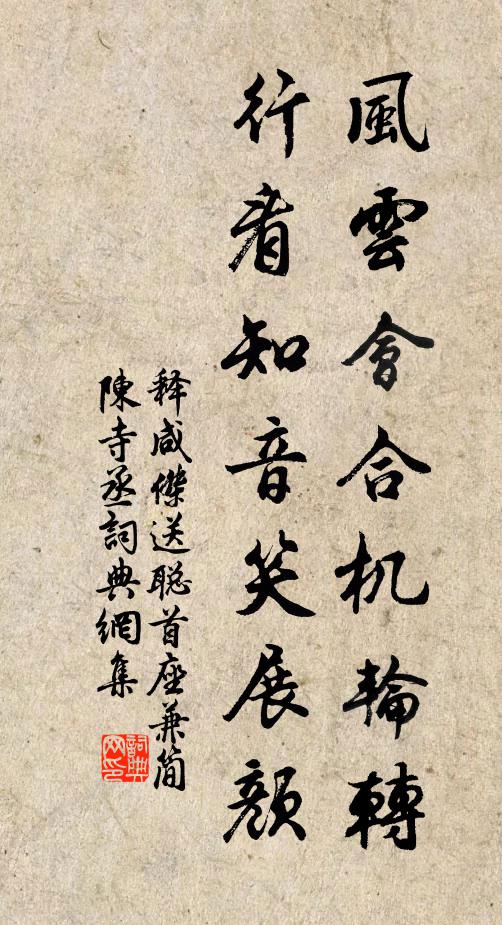 風雲會合机輪轉
行看知音笑展顔
释咸傑送聪首座兼简
陳寺丞詞典網集
詞典
网印